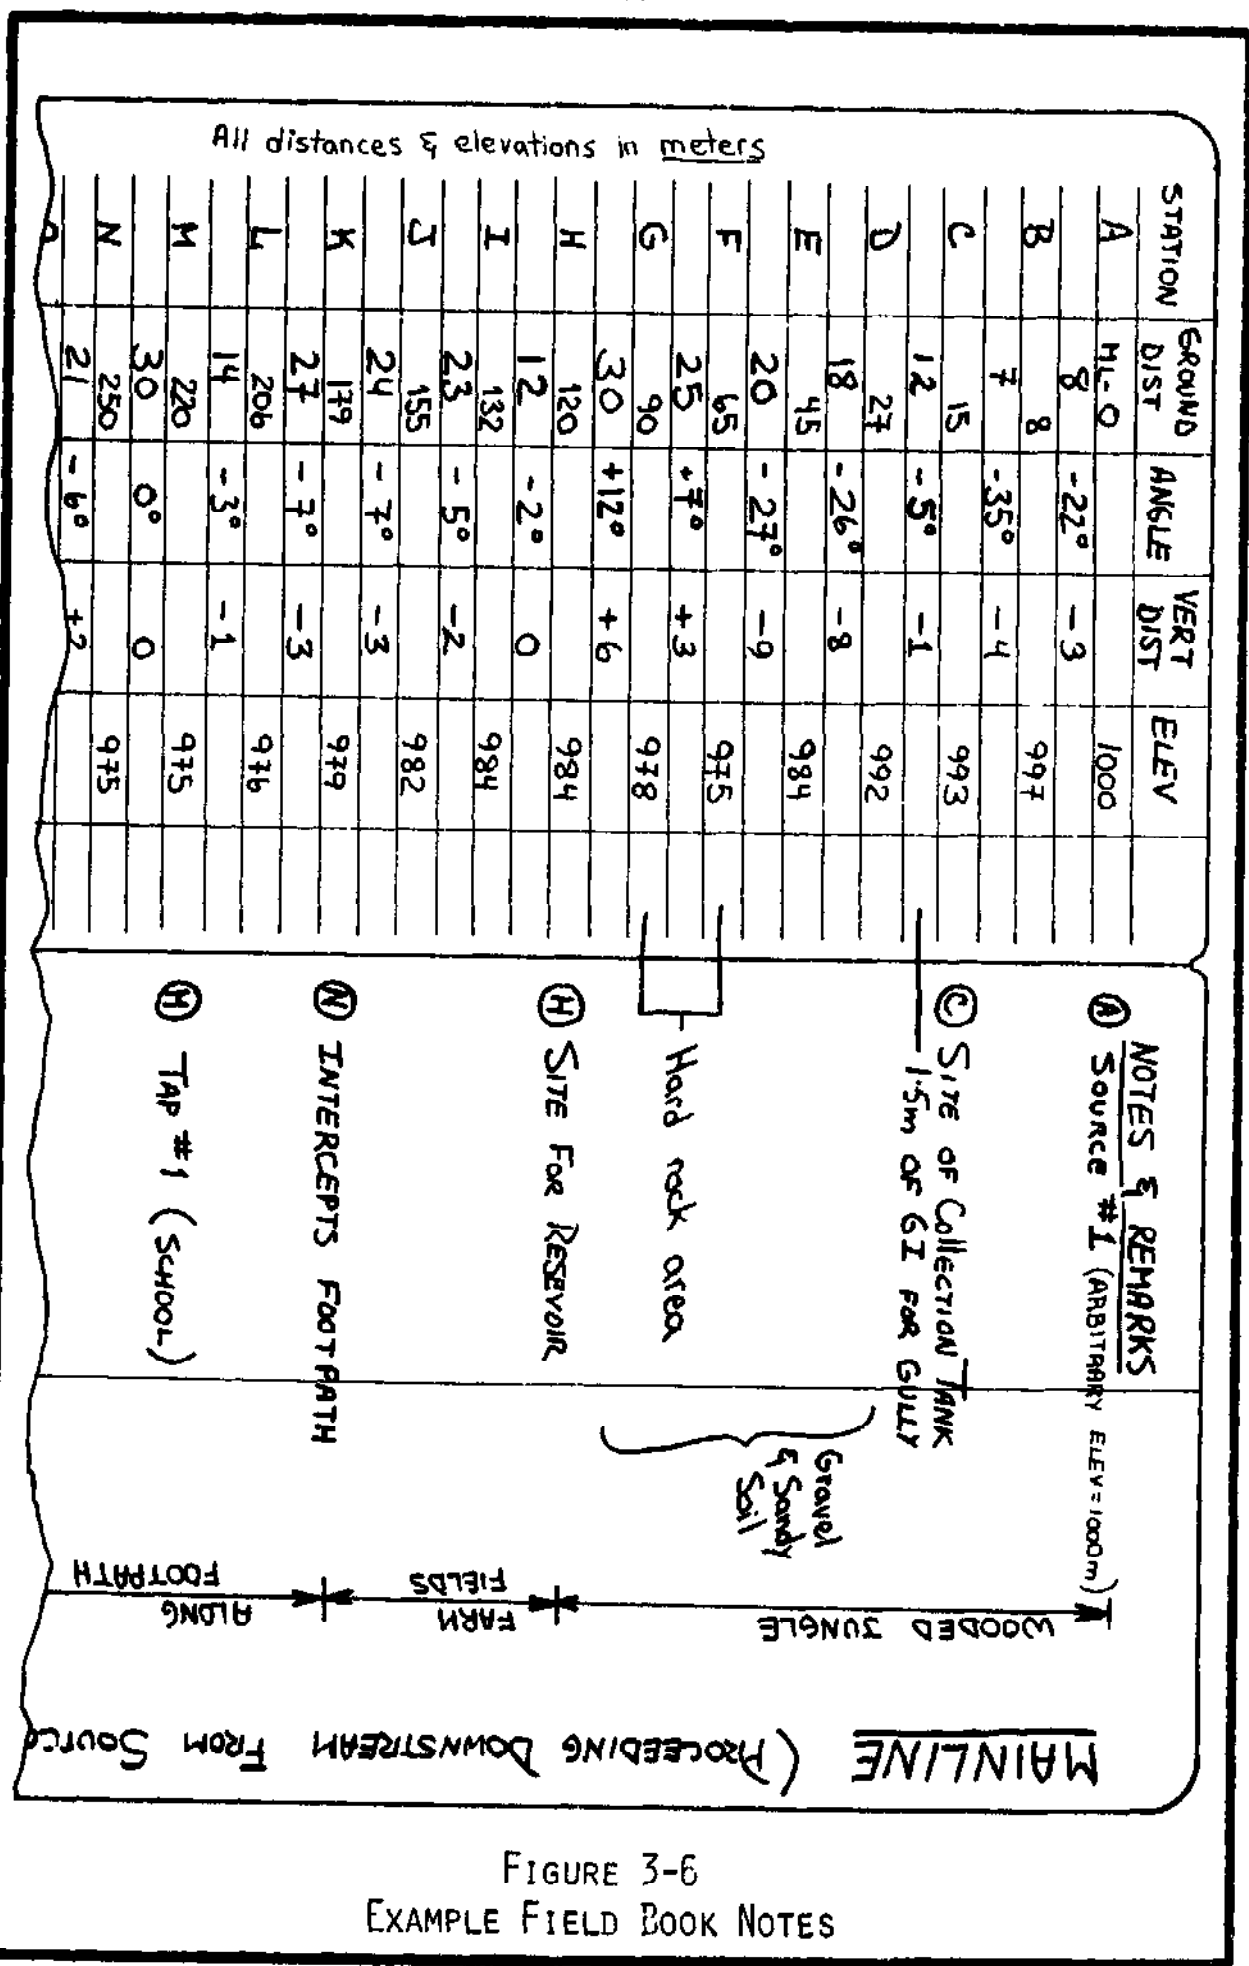 All distances & elevations in meters
STATION GROUND DIST ANGLE VERT DIST ELEV
A ML-0 1000
8 -22° -3
B 8 997
7 -35° -4
C 15 993
12 -5° -1
D 27 992
18 -26° -8
E 45 984
20 -27° -9
F 65 975
25 +7° +3
G 90 978
30 +12° +6
H 120 984
12 -2° 0
I 132 984
23 -5° -2
J 155 982
24 -7° -3
K 179 979
27 -7° -3
L 206 976
14 -3° -1
M 220 975
30 0° 0
N 250 975
21 -6° +2
NOTES & REMARKS
(A) SOURCE #1 (ARBITRARY ELEV=1000m)
(C) SITE OF COLLECTION TANK
1.5m OF GI FOR GULLY
Hard rock area
(H) SITE FOR RESEVOIR
(N) INTERCEPTS FOOTPATH
(M) TAP #1 (SCHOOL)
Gravel
& Sandy
Soil
WOODED JUNGLE
FARM
FIELDS
ALONG
FOOTPATH
MAINLINE (PROCEEDING DOWNSTREAM FROM SOURCE
FIGURE 3-6
EXAMPLE FIELD BOOK NOTES